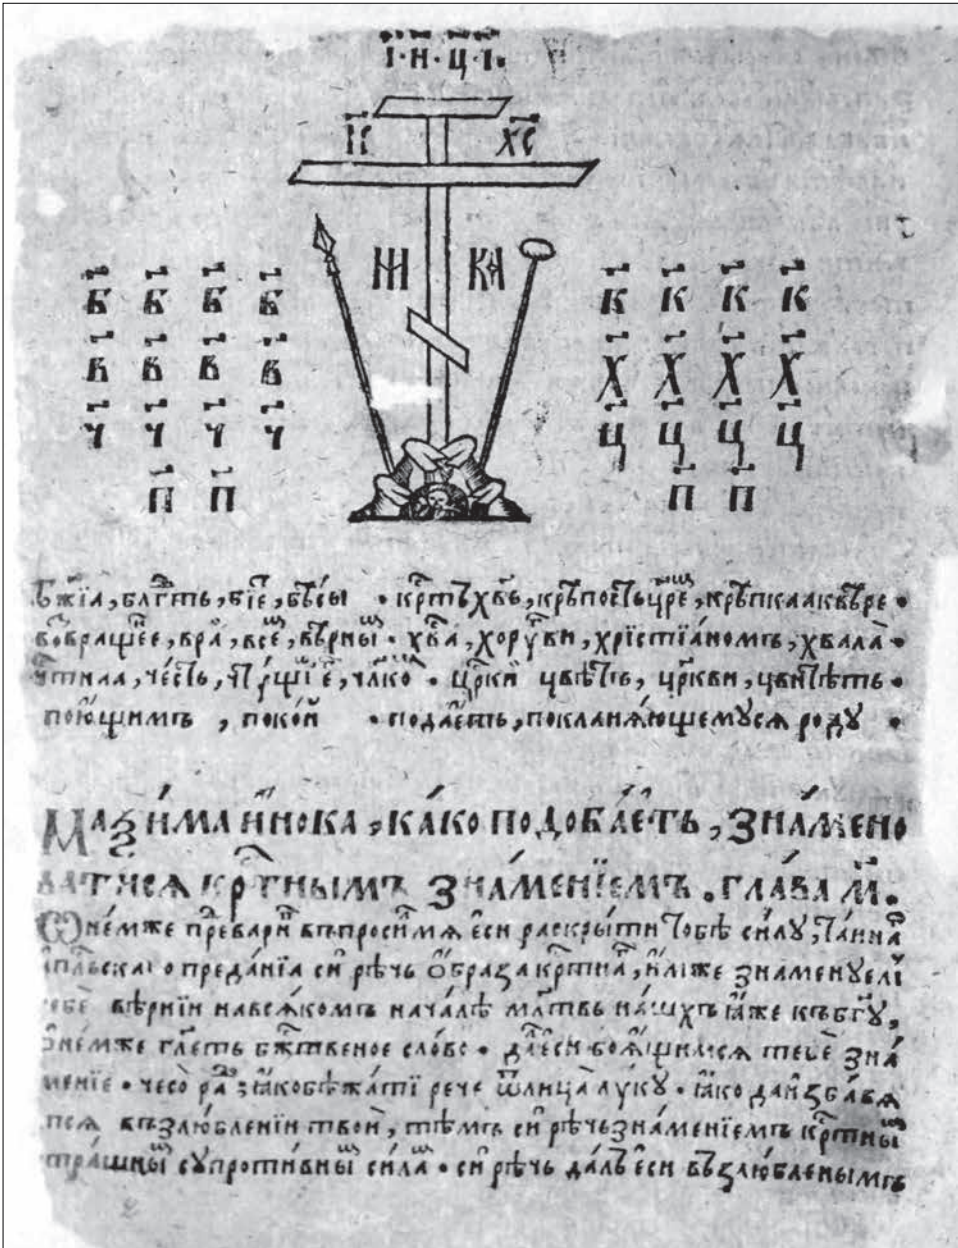 І·Н·Ц·І·
І҃С Х҃С
НИ КА
Б҃ Б҃ Б҃ Б҃ К҃ К҃ К҃ К҃
В҃ В҃ В҃ В҃ Х҃ Х҃ Х҃ Х҃
Ч҃ Ч҃ Ч҃ Ч҃ Ц҃ Ц҃ Ц҃ Ц҃
П҃ П҃ П҃ П҃
бж҃їа, блгⷭ҇ть, бїе, бѣсы · крⷭ҇тъ хв҃ъ, крѣпость
воⷥвращеⷩ҇їе, вра, все, вѣрныⷨ · хв҃а, хорⷹгви, хрїстїѧномъ, хвала ·
чтⷭ҇наѧ, честь, члк҃о · црк҃и цвѣтъ, црк҃ви, цвѣтетъ ·
поющимъ, покои · подаетъ, покланѧющемусѧ роду ·
Маѯима инока, како подобаетъ, знамено
ватисѧ крⷭ҇тнымъ знаменїемъ. глава м҃.
Ѡ немже преⷤ вари въпросим мѧ еси раскрыти тобѣ силу, таинаⷢ
апⷭ҇льскаго преданїа си рѣчь ѡбраза крⷭ҇тнаⷢ, имже знаменуелѝ
себе вѣрнїи на всѧкомъ началѣ млт҃въ нашихъ ꙗже къ бг҃у,
ѡ немже гл҃етъ бжⷭ҇твеное слово · далъ еси боѧщимсѧ тебе зна
менїе · чесо раⷣ ꙗко бѣжати рече ѿ лица луку · ꙗко да избавѧ
тсѧ възлюбленїи твои, тѣмъ си рѣчь знаменїемъ крⷭ҇тныⷨ
страшныⷨ супротивныⷨ силаⷨ · си рѣчь далъ еси възлюбленымъ